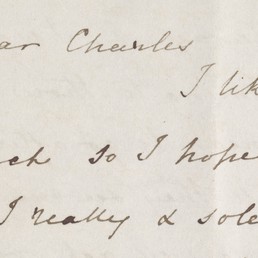 ar Charles
I lik
ch so I hope
I really & sole